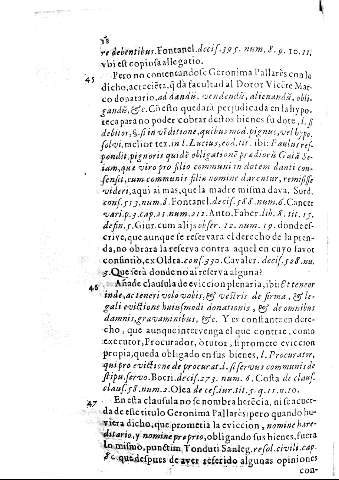 78
re debentibus. Fontanel. decis. 395. num. 8. 9. 10. 11.
vbi est copiosa allegatio.
45 Pero no contentandose Geronima Pallarès con lo
dicho, acrecieta, q̃ dà facultad al Dotor Vicẽte Mar-
co donatario, ad dandũ, vendendũ, alienandũ, obli-
gandũ, &c. Cõ esto quedarà perjudicada en la hypo-
teca para no poder cobrar destos bienes su dote, l. §
debitor, §. si in vẽditione, quibus mod. pignus, vel hypo.
solvi, melior tex. in l. Lucius, eod. tit. ibi: Paulus res-
pondit, pignoris quidẽ obligationẽ prædiorũ Gaiã Se-
iam, que viro pro filio communi in dotem danti con-
sensit, cum communis filio nomine darentur, remisisse
videri, aqui ai mas, que la madre misma dava, Surd.
cons. 513. num. 8. Fontanel. decis. 588. num. 6. Cance
vari. p. 3. cap. 21. num. 212. Anto. Faber. lib. 8. tit. 15.
defin. 5. Giur. cum alijs obser. 12. num. 19. donde es-
crive, que aunque se reservara el derecho de la pren-
da, no obrarà la reserva contra aquel en cuyo favor
consintiò, ex Oldra. cons. 330. Cavaler. decis. 528. nu.
3. Que serà donde no ai reserva alguna?
46 Añade clausula de eviccion plenaria, ibi: Et teneor
inde, ac teneri volo vobis, & vestris de firma, & le-
gali evictione huiusmodi donationis, & de omnibus
damnis, gravaminibus, &c. Y es constanta en dere-
cho, que aunque intervenga el que contrae, como
executor, Procurador, ò tutor, si promete eviccion
propia, queda obligado en sus bienes, l. Procurator,
qui pro evictione de procurat. l. si servus communis de
stipu. servo. Boeri. decis. 273. num. 6. Costa de claus.
claus. 58. num. 2. Olea de ces. iur. tit. 5. q. 11. n. 10.
47 En esta clausula no se nombra herecia, ni se acuer-
da de este titulo Geronima Pallarès: pero quando hu-
viera dicho, que prometia la eviccion, nomine hare-
ditario, y nomine proprio, obligando sus bienes, fuera
lo mismo, punctim Tonduti Sanleg. resol. civils. cap.
8 c. que despues de aver referido algunas opiniones
con-